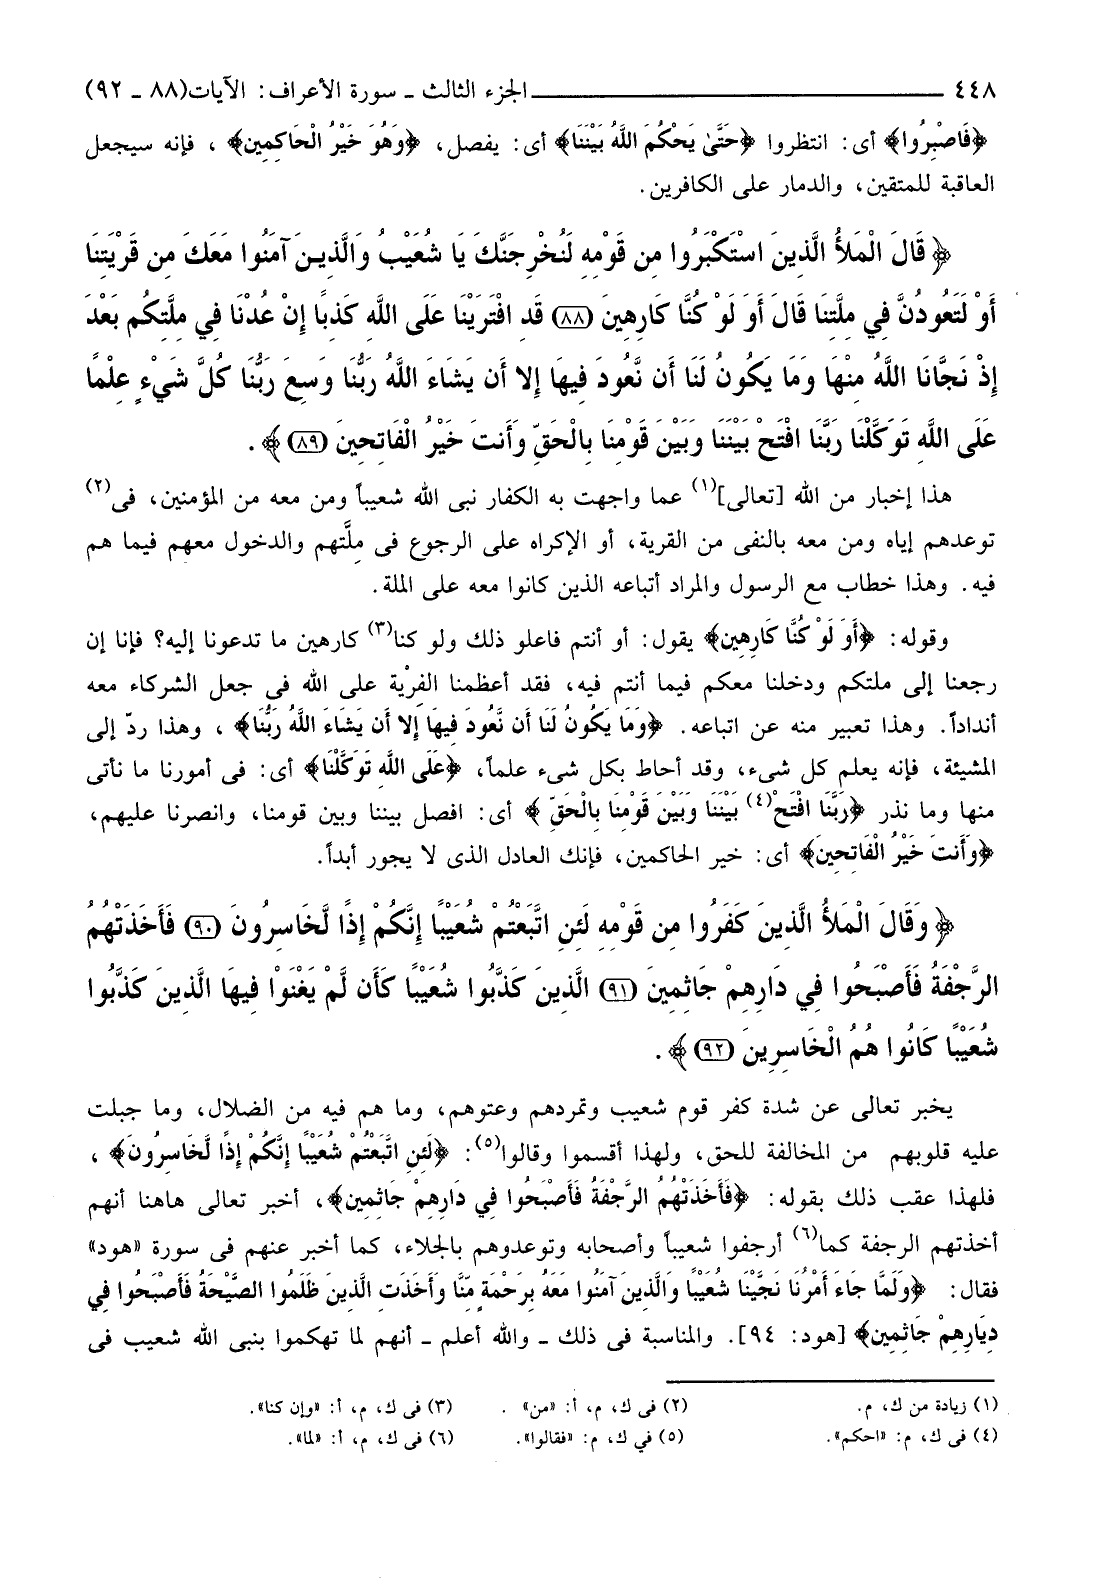 ٤٤٨ ـــــــــــــــــــــ الجزء الثالث ـ سورة الأعراف: الآيات(٨٨ ـ ٩٢)
﴿فَاصْبِرُوا﴾ أى: انتظروا ﴿حَتَّىٰ يَحْكُمَ اللَّهُ بَيْنَنَا﴾ أى: يفصل، ﴿وَهُوَ خَيْرُ الْحَاكِمِين﴾ ، فإنه سيجعل
العاقبة للمتقين، والدمار على الكافرين.
﴿ قَالَ الْمَلأُ الَّذِينَ اسْتَكْبَرُوا مِن قَوْمِهِ لَنُخْرِجَنَّكَ يَا شُعَيْبُ وَالَّذِينَ آمَنُوا مَعَكَ مِن قَرْيَتِنَا
أَوْ لَتَعُودُنَّ فِي مِلَّتِنَا قَالَ أَوَ لَوْ كُنَّا كَارِهِينَ (٨٨) قَدِ افْتَرَيْنَا عَلَى اللَّهِ كَذِبًا إِنْ عُدْنَا فِي مِلَّتِكُم بَعْدَ
إِذْ نَجَّانَا اللَّهُ مِنْهَا وَمَا يَكُونُ لَنَا أَن نَّعُودَ فِيهَا إِلا أَن يَشَاءَ اللَّهُ رَبُّنَا وَسِعَ رَبُّنَا كُلَّ شَيْءٍ عِلْمًا
عَلَى اللَّهِ تَوَكَّلْنَا رَبَّنَا افْتَحْ بَيْنَنَا وَبَيْنَ قَوْمِنَا بِالْحَقِّ وَأَنتَ خَيْرُ الْفَاتِحِينَ (٨٩) ﴾ .
هذا إخبار من الله [تعالى](١) عما واجهت به الكفار نبى الله شعيباً ومن معه من المؤمنين، فى(٢)
توعدهم إياه ومن معه بالنفى من القرية، أو الإكراه على الرجوع فى مِلَّتهم والدخول معهم فيما هم
فيه. وهذا خطاب مع الرسول والمراد أتباعه الذين كانوا معه على الملة.
وقوله: ﴿أَوَ لَوْ كُنَّا كَارِهِين﴾ يقول: أو أنتم فاعلو ذلك ولو كنا(٣) كارهين ما تدعونا إليه؟ فإنا إن
رجعنا إلى ملتكم ودخلنا معكم فيما أنتم فيه، فقد أعظمنا الفِرْية على الله فى جعل الشركاء معه
أنداداً. وهذا تعبير منه عن اتباعه. ﴿وَمَا يَكُونُ لَنَا أَن نَّعُودَ فِيهَا إِلا أَن يَشَاءَ اللَّهُ رَبُّنَا﴾ ، وهذا ردّ إلى
المشيئة، فإنه يعلم كل شىء، وقد أحاط بكل شىء علماً، ﴿عَلَى اللَّهِ تَوَكَّلْنَا﴾ أى: فى أمورنا ما نأتى
منها وما نذر ﴿رَبَّنَا افْتَحْ(٤) بَيْنَنَا وَبَيْنَ قَوْمِنَا بِالْحَقِّ ﴾ أى: افصل بيننا وبين قومنا، وانصرنا عليهم،
﴿وَأَنتَ خَيْرُ الْفَاتِحِينَ﴾ أى: خير الحاكمين، فإنك العادل الذى لا يجور أبداً.
﴿ وَقَالَ الْمَلأُ الَّذِينَ كَفَرُوا مِن قَوْمِهِ لَئِنِ اتَّبَعْتُمْ شُعَيْبًا إِنَّكُمْ إِذًا لَّخَاسِرُونَ (٩٠) فَأَخَذَتْهُمُ
الرَّجْفَةُ فَأَصْبَحُوا فِي دَارِهِمْ جَاثِمِينَ (٩١) الَّذِينَ كَذَّبُوا شُعَيْبًا كَأَن لَّمْ يَغْنَوْا فِيهَا الَّذِينَ كَذَّبُوا
شُعَيْبًا كَانُوا هُمُ الْخَاسِرِينَ (٩٢) ﴾ .
يخبر تعالى عن شدة كفر قوم شعيب وتمردهم وعتوهم، وما هم فيه من الضلال، وما جبلت
عليه قلوبهم من المخالفة للحق، ولهذا أقسموا وقالوا(٥): ﴿لَئِنِ اتَّبَعْتُمْ شُعَيْبًا إِنَّكُمْ إِذًا لَّخَاسِرُونَ﴾ ،
فلهذا عقب ذلك بقوله: ﴿فَأَخَذَتْهُمُ الرَّجْفَةُ فَأَصْبَحُوا فِي دَارِهِمْ جَاثِمِين﴾، أخبر تعالى هاهنا أنهم
أخذتهم الرجفة كما(٦) أرجفوا شعيباً وأصحابه وتوعدوهم بالجلاء، كما أخبر عنهم فى سورة «هود»
فقال: ﴿وَلَمَّا جَاءَ أَمْرُنَا نَجَّيْنَا شُعَيْبًا وَالَّذِينَ آمَنُوا مَعَهُ بِرَحْمَةٍ مِّنَّا وَأَخَذَتِ الَّذِينَ ظَلَمُوا الصَّيْحَةُ فَأَصْبَحُوا فِي
دِيَارِهِمْ جَاثِمِين﴾ [هود: ٩٤]. والمناسبة فى ذلك ـ والله أعلم ـ أنهم لما تهكموا بنبى الله شعيب فى
(١) زيادة من ك، م. (٢) فى ك، م، أ: «من» . (٣) فى ك، م، أ: «وإن كنا».
(٤) فى ك، م: «احكم». (٥) في ك، م: «فقالوا». (٦) فى ك، م، أ: «لما».